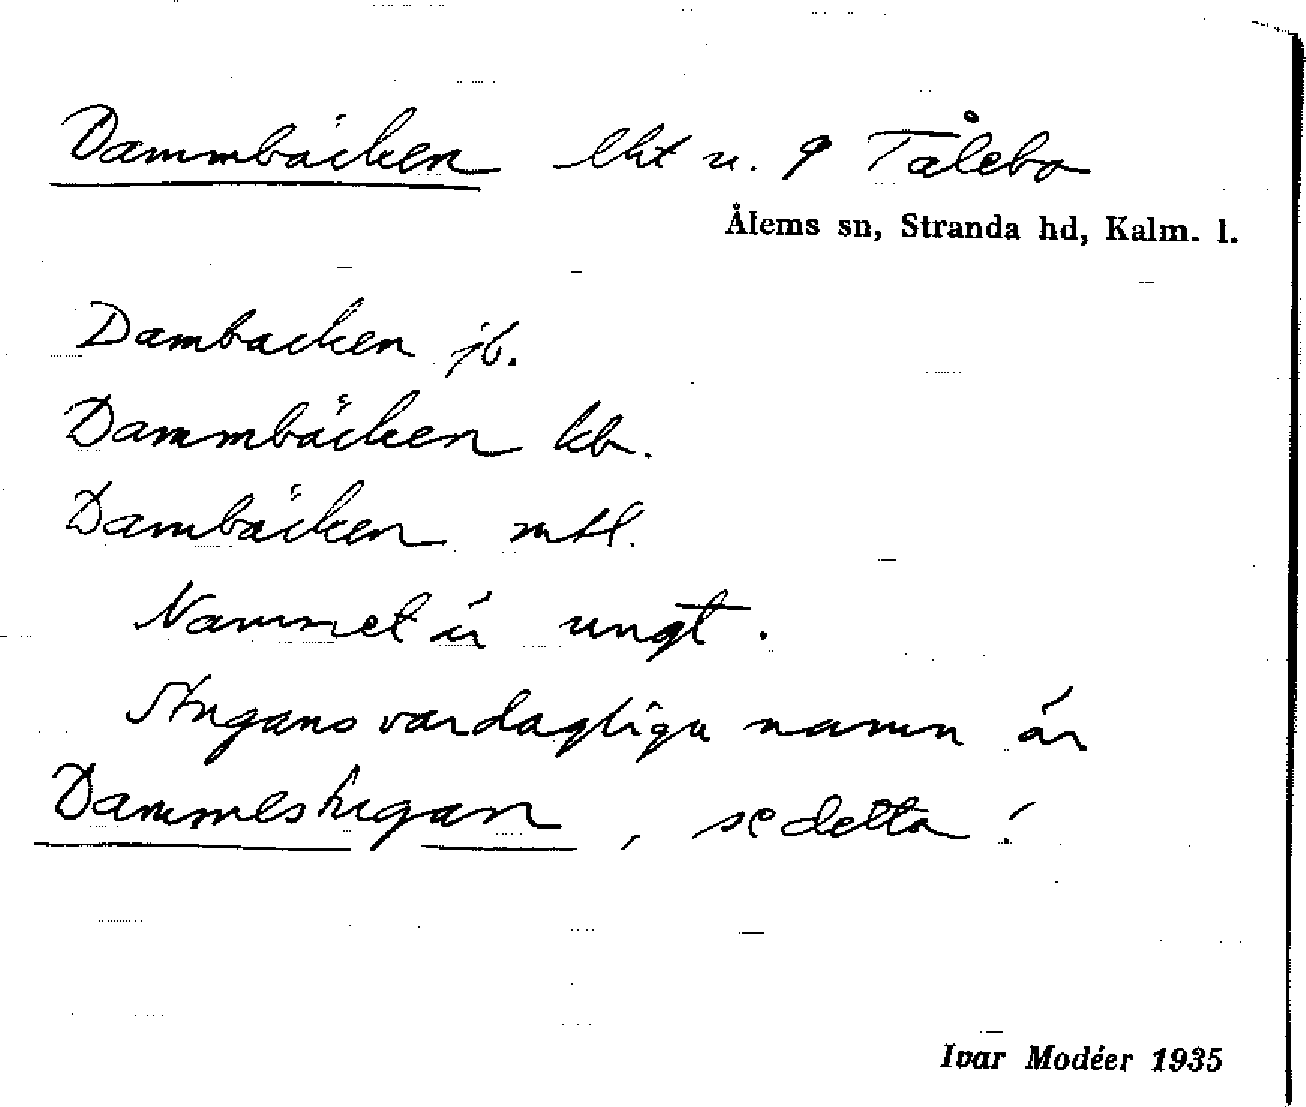 Dammbäcken lht u. Tålebo
Ålems sn, Stranda hd, Kalm. l.
Dambacken jb.
Dammbäcken kb.
Dambäcken mtl.
Namnet är ungt.
Stugans vardagliga namn är
Dammestugan, se detta!
Ivar Modéer 1935